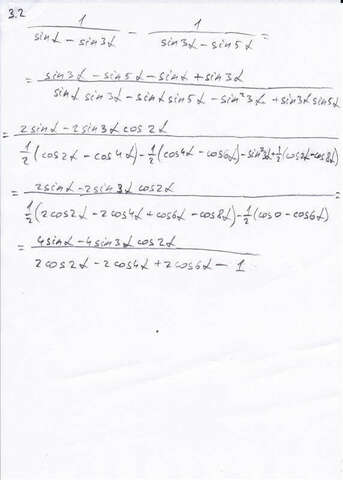 3.2
1/(sinα - sin3α) - 1/(sin3α - sin5α) =
= (sin3α - sin5α - sinα + sin3α)/(sinα sin3α - sinα sin5α - sin²3α + sin3α sin5α)
= (2sinα - 2sin3α cos2α)/(1/2(cos2α - cos4α) - 1/2(cos4α - cos6α) - sin²3α + 1/2(cos2α - cos8α))
= (2sinα - 2sin3α cos2α)/(1/2(2cos2α - 2cos4α + cos6α - cos8α) - 1/2(cos0 - cos6α))
= (4sinα - 4sin3α cos2α)/(2cos2α - 2cos4α + 2cos6α - 1)